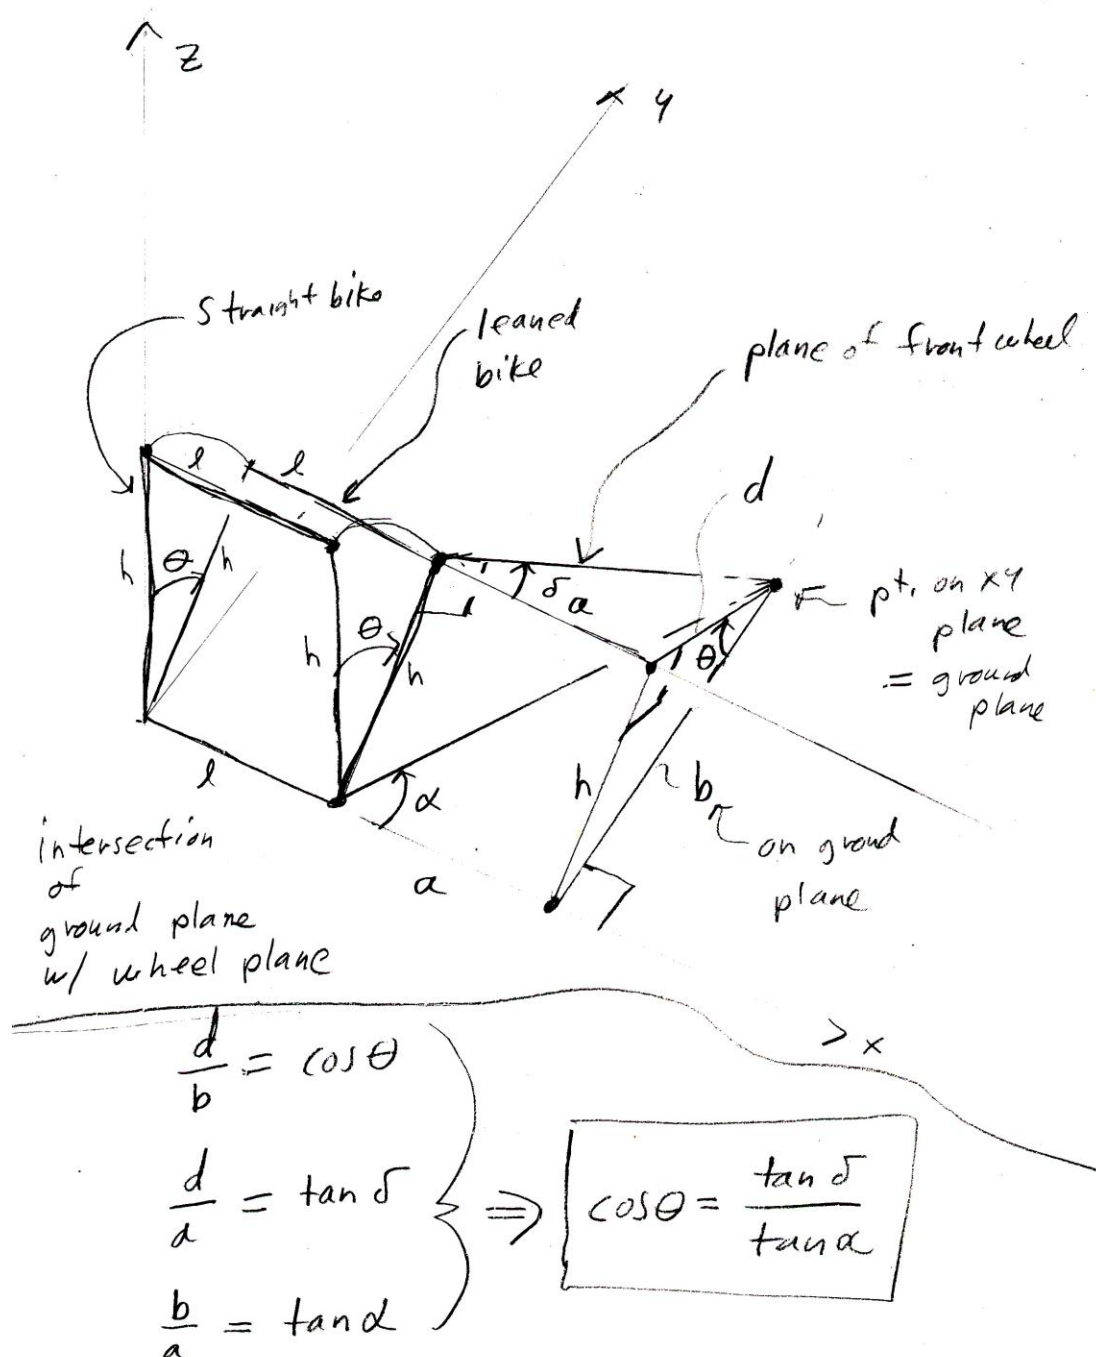 z
y
Straight bike
leaned
bike
plane of front wheel
l
l
d
h
θ
h
δ
a
pt. on xy
plane
= ground
plane
θ
h
h
θ
l
α
h
b
on ground
plane
a
intersection
of
ground plane
w/ wheel plane
x
d/b = cos θ
d/a = tan δ
⇒ cos θ = tan δ / tan α
b/a = tan α